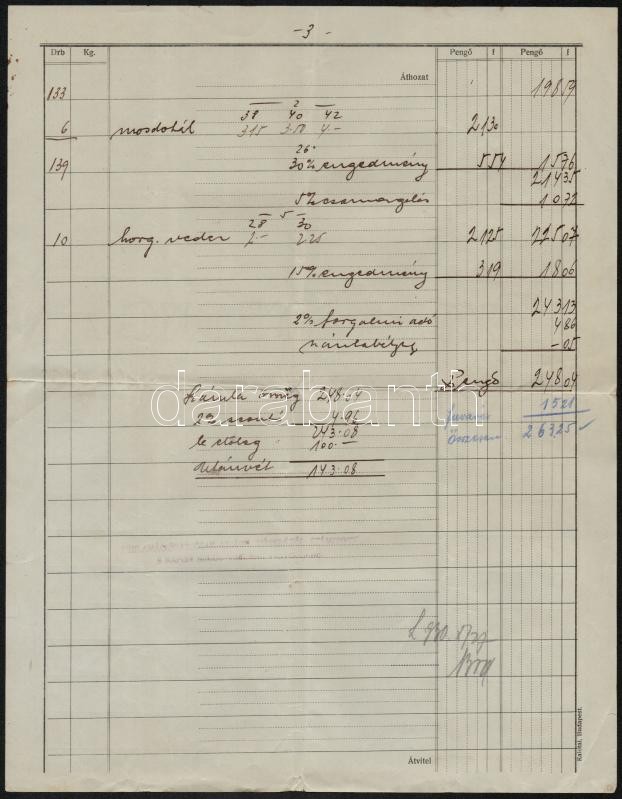 - 3 -
Drb Kg. Pengő f Pengő f
Áthozat
133 198 59
2
38 40 42
6 mosdótál 3.15 3.50 4.- 21 30
26.
139 30% engedmény 5 54 15 76
214 35
5% csomagolás 10 72
5
28 30
10 horg. veder 2.- 2.25 21 25 225 07
15% engedmény 3 19 18 06
243 13
2% forgalmi adó 4 86
számlabélyeg - 05
Pengő 248 04
Számla összeg 248.04 15 21
2% sconto 4.96 fuvar
243.08 Összesen 263,25
le előleg 100.-
Utánvét 143.08
darabanth
Átvitel
Kalotai, Budapest.